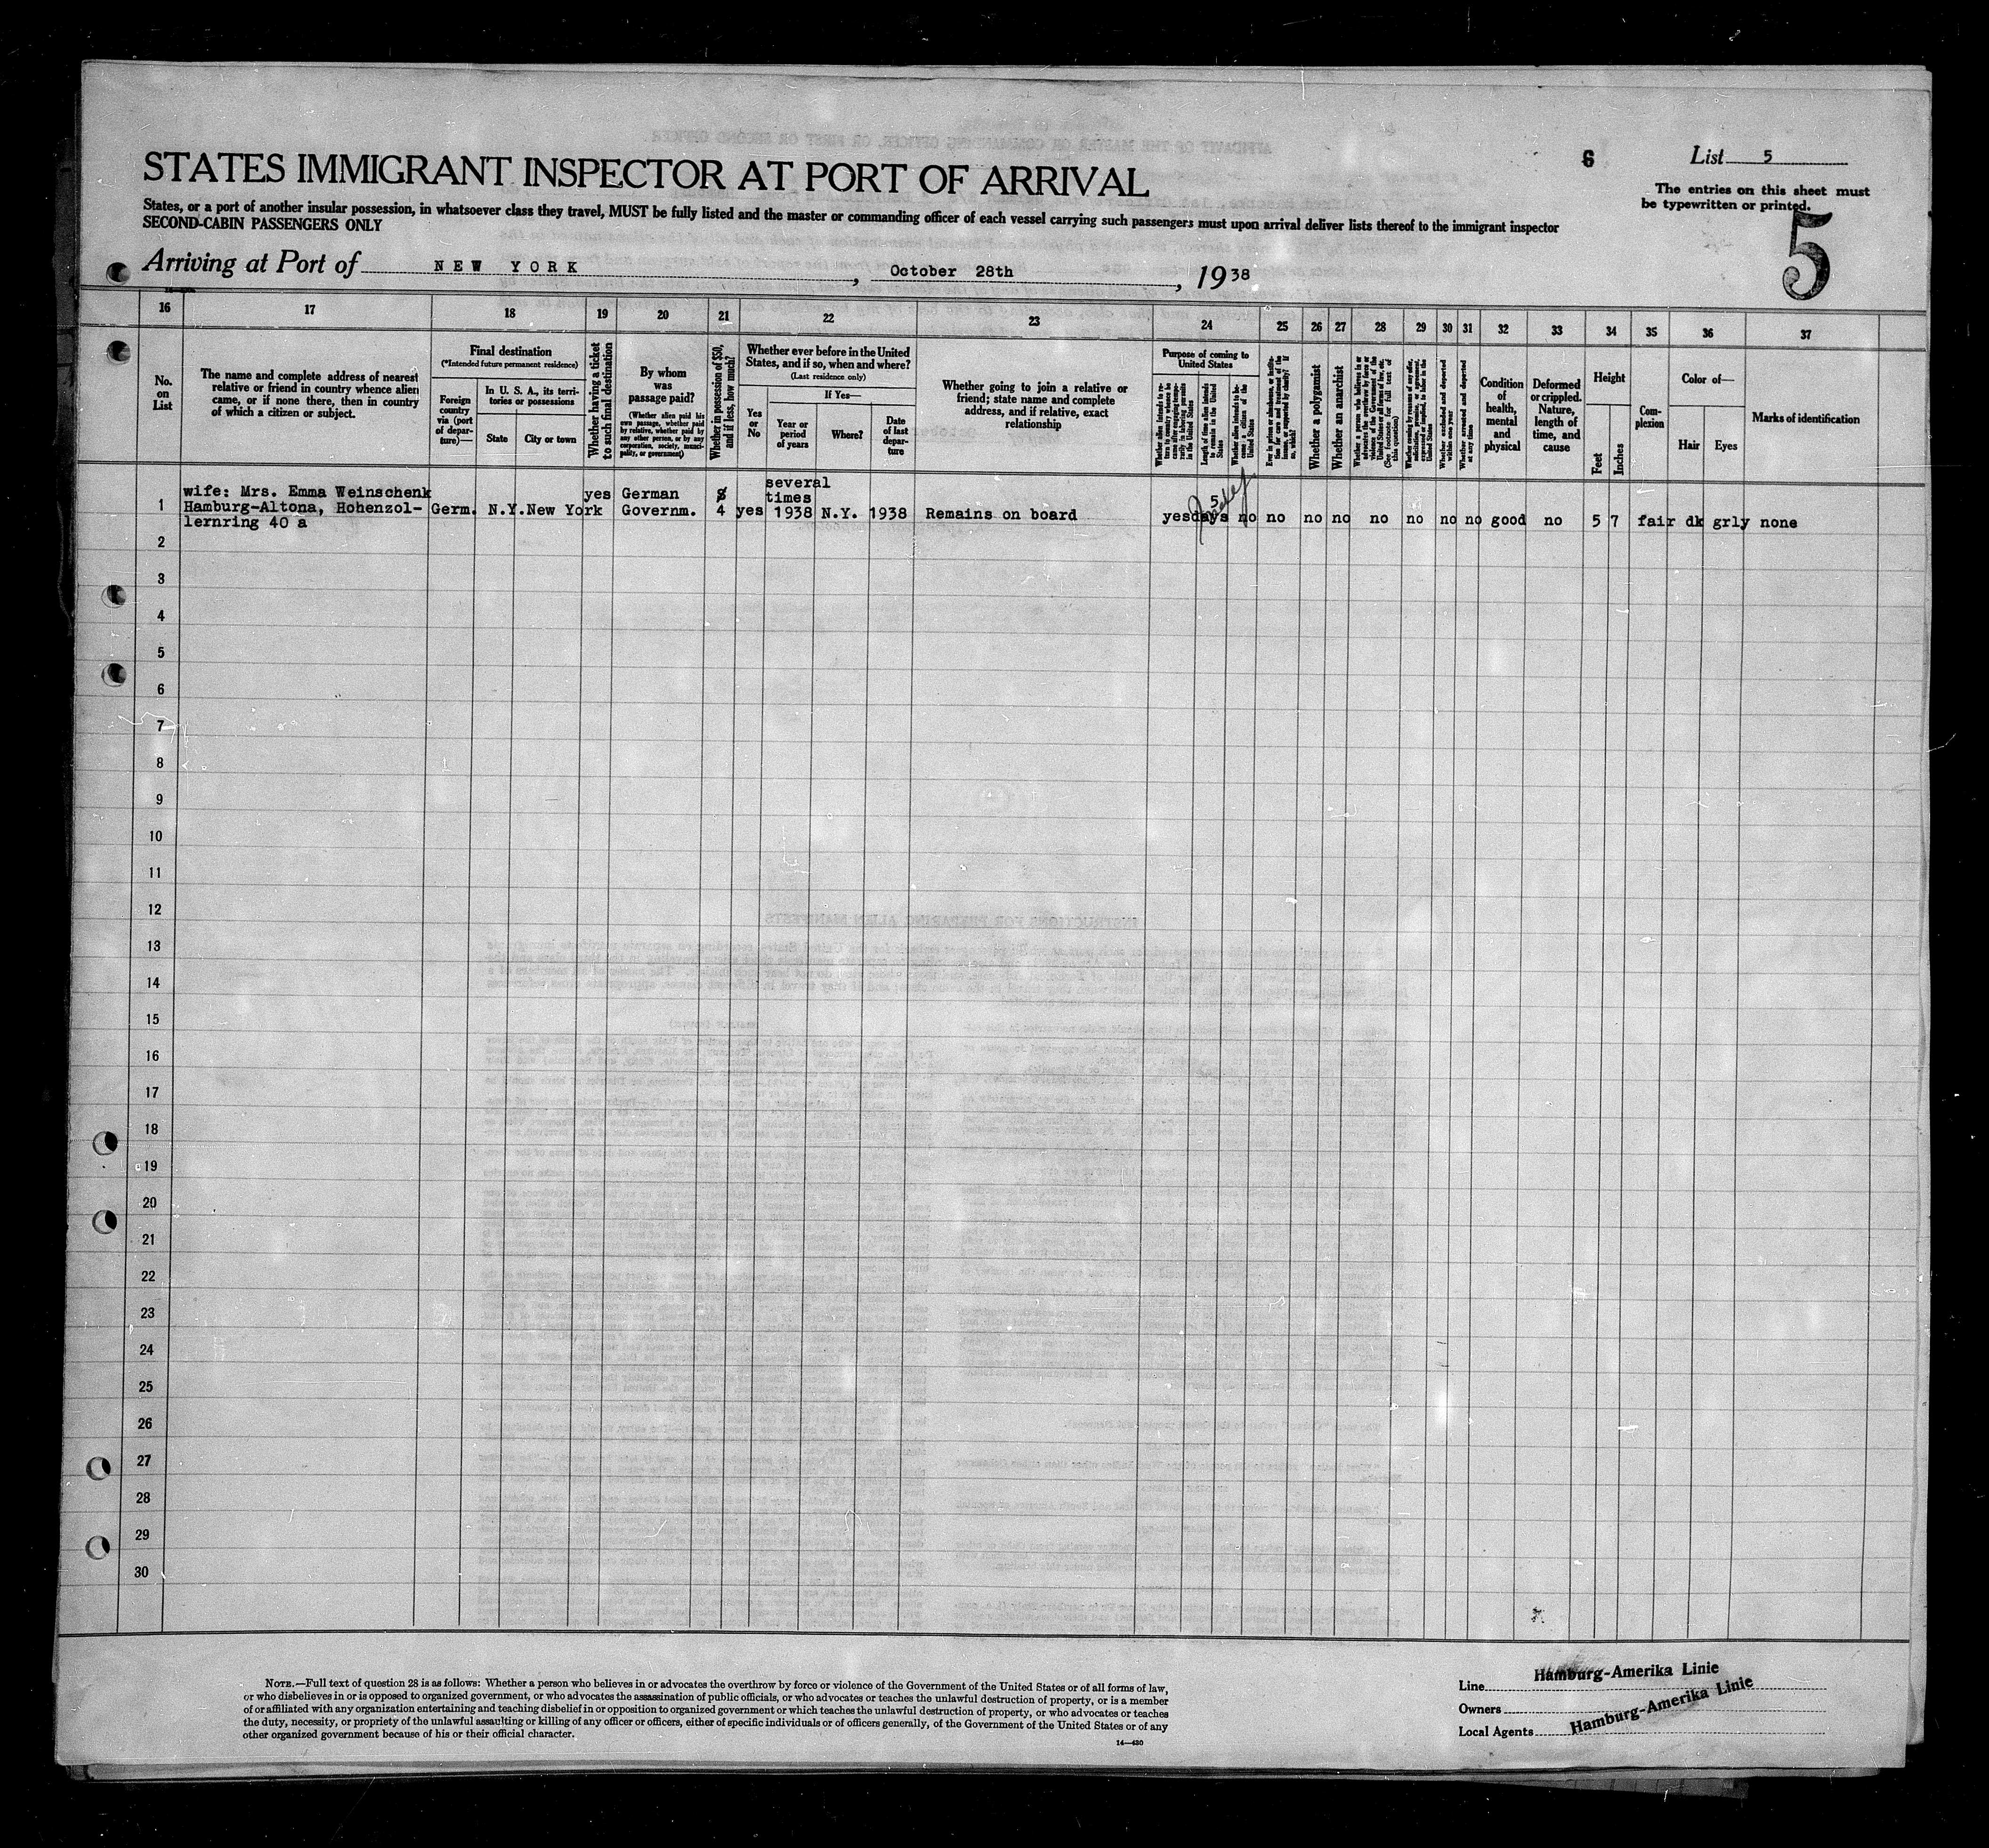 STATES IMMIGRANT INSPECTOR AT PORT OF ARRIVAL
6
List 5
The entries on this sheet must
be typewritten or printed.
5
States, or a port of another insular possession, in whatsoever class they travel, MUST be fully listed and the master or commanding officer of each vessel carrying such passengers must upon arrival deliver lists thereof to the immigrant inspector
SECOND-CABIN PASSENGERS ONLY
Arriving at Port of NEW YORK, October 28th, 1938
16 17 18 19 20 21 22 23 24 25 26 27 28 29 30 31 32 33 34 35 36 37
No.
on
List
The name and complete address of nearest
relative or friend in country whence alien
came, or if none there, then in country
of which a citizen or subject.
Final destination
(*Intended future permanent residence)
Foreign
country
via (port
of depar-
ture)—
In U. S. A., its terri-
tories or possessions
State
City or town
Whether having a ticket
to such final destination
By whom
was
passage paid?
(Whether alien paid his
own passage, whether paid
by relative, whether paid by
any other person, or by any
corporation, society, munici-
pality, or government)
Whether in possession of $50,
and if less, how much?
Whether ever before in the United
States, and if so, when and where?
(Last residence only)
Yes
or
No
If Yes—
Year or
period
of years
Where?
Date
of last
depar-
ture
Whether going to join a relative or
friend; state name and complete
address, and if relative, exact
relationship
Purpose of coming to
United States
Whether alien intends to re-
turn to country whence he
came after engaging tempo-
rarily in laboring pursuits
in the United States
Length of time alien intends
to remain in the United
States
Whether alien intends to be-
come a citizen of the
United States
Ever in prison or almshouse, or institu-
tion for care and treatment of the
insane, or supported by charity? If
so, which?
Whether a polygamist
Whether an anarchist
Whether a person who believes in or
advocates the overthrow by force or
violence of the Government of the
United States or all forms of law, etc.
(See footnote for full text of
this question)
Whether coming by reason of any offer,
solicitation, promise, or agreement,
expressed or implied, to labor in the
United States
Whether excluded and deported
within one year
Whether arrested and deported
at any time
Condition
of
health,
mental
and
physical
Deformed
or crippled.
Nature,
length of
time, and
cause
Height
Feet
Inches
Com-
plexion
Color of—
Hair
Eyes
Marks of identification
1
wife: Mrs. Emma Weinschenk
Hamburg-Altona, Hohenzol-
lernring 40 a
Germ. N.Y. New York
yes
German
Governm.
4
yes
several
times
1938 N.Y. 1938
Remains on board
yes
5
days
no no no no no no no no good no 5 7 fair dk grly none
2
3
4
5
6
7
8
9
10
11
12
13
14
15
16
17
18
19
20
21
22
23
24
25
26
27
28
29
30
NOTE.—Full text of question 28 is as follows: Whether a person who believes in or advocates the overthrow by force or violence of the Government of the United States or of all forms of law,
or who disbelieves in or is opposed to organized government, or who advocates the assassination of public officials, or who advocates or teaches the unlawful destruction of property, or is a member
of or affiliated with any organization entertaining and teaching disbelief in or opposition to organized government or which teaches the unlawful destruction of property, or who advocates or teaches
the duty, necessity, or propriety of the unlawful assaulting or killing of any officer or officers, either of specific individuals or of officers generally, of the Government of the United States or of any
other organized government because of his or their official character.
14—430
Line Hamburg-Amerika Linie
Owners
Local Agents Hamburg-Amerika Linie